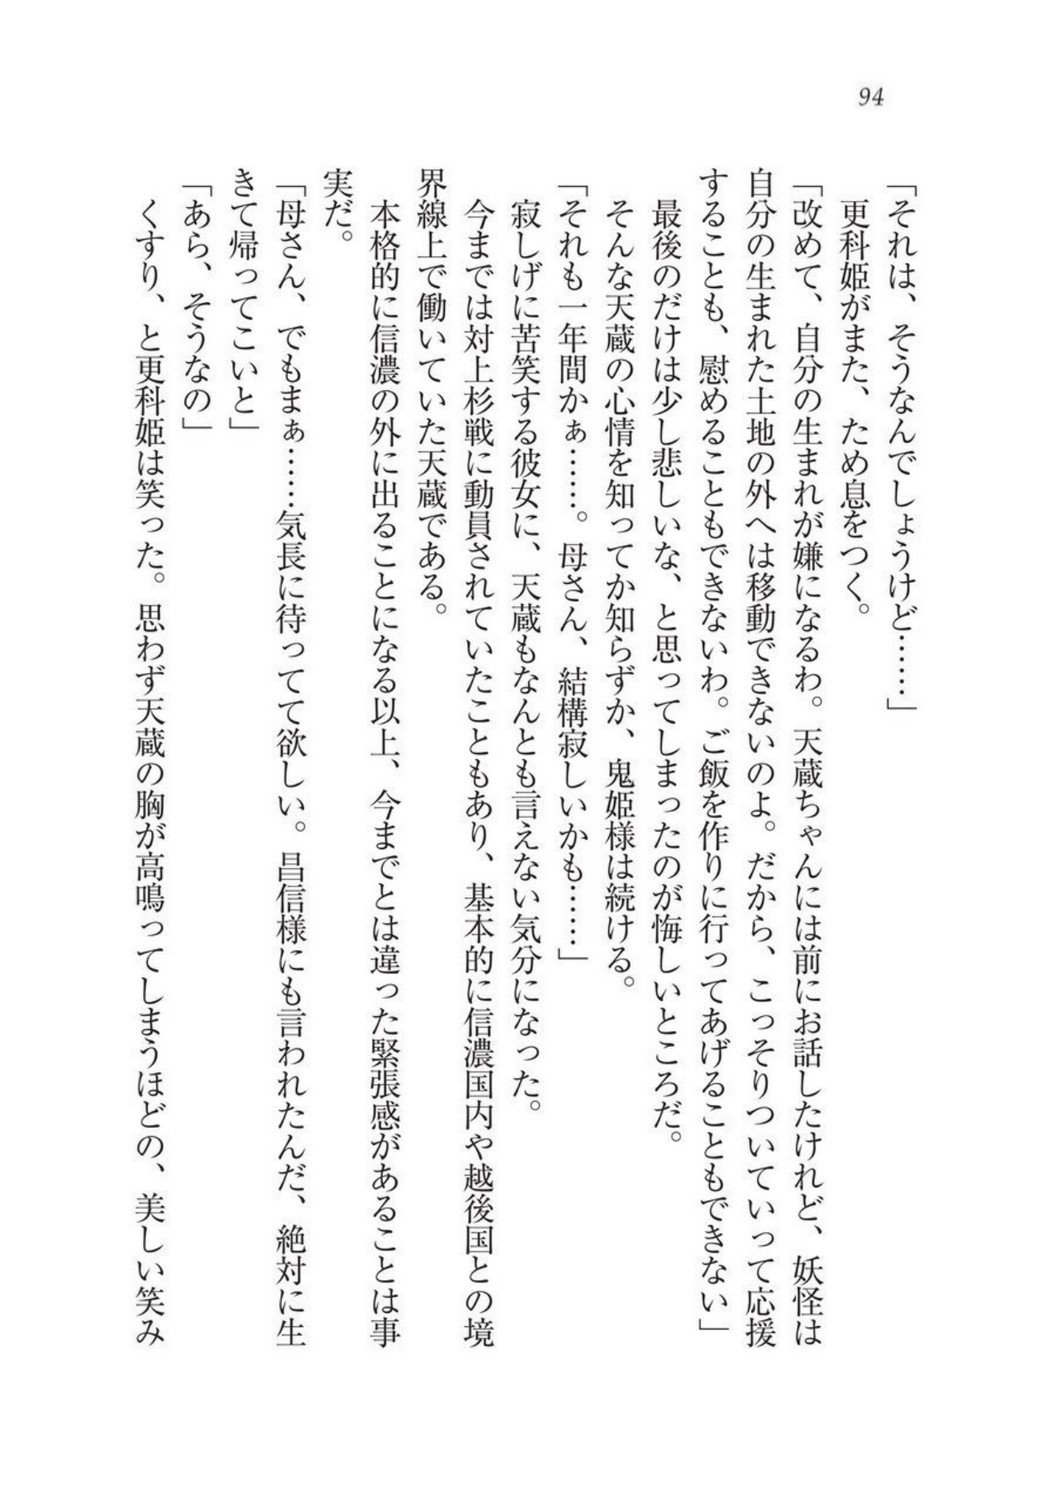 94
「それは、そうなんでしょうけど……」
更科姫がまた、ため息をつく。
「改めて、自分の生まれが嫌になるわ。天蔵ちゃんには前にお話したけれど、妖怪は
自分の生まれた土地の外へは移動できないのよ。だから、こっそりついていって応援
することも、慰めることもできないわ。ご飯を作りに行ってあげることもできない」
最後のだけは少し悲しいな、と思ってしまったのが悔しいところだ。
そんな天蔵の心情を知ってか知らずか、鬼姫様は続ける。
「それも一年間かぁ……。母さん、結構寂しいかも……」
寂しげに苦笑する彼女に、天蔵もなんとも言えない気分になった。
今までは対上杉戦に動員されていたこともあり、基本的に信濃国内や越後国との境
界線上で働いていた天蔵である。
本格的に信濃の外に出ることになる以上、今までとは違った緊張感があることは事
実だ。
「母さん、でもまぁ……気長に待ってて欲しい。昌信様にも言われたんだ、絶対に生
きて帰ってこいと」
「あら、そうなの」
くすり、と更科姫は笑った。思わず天蔵の胸が高鳴ってしまうほどの、美しい笑み